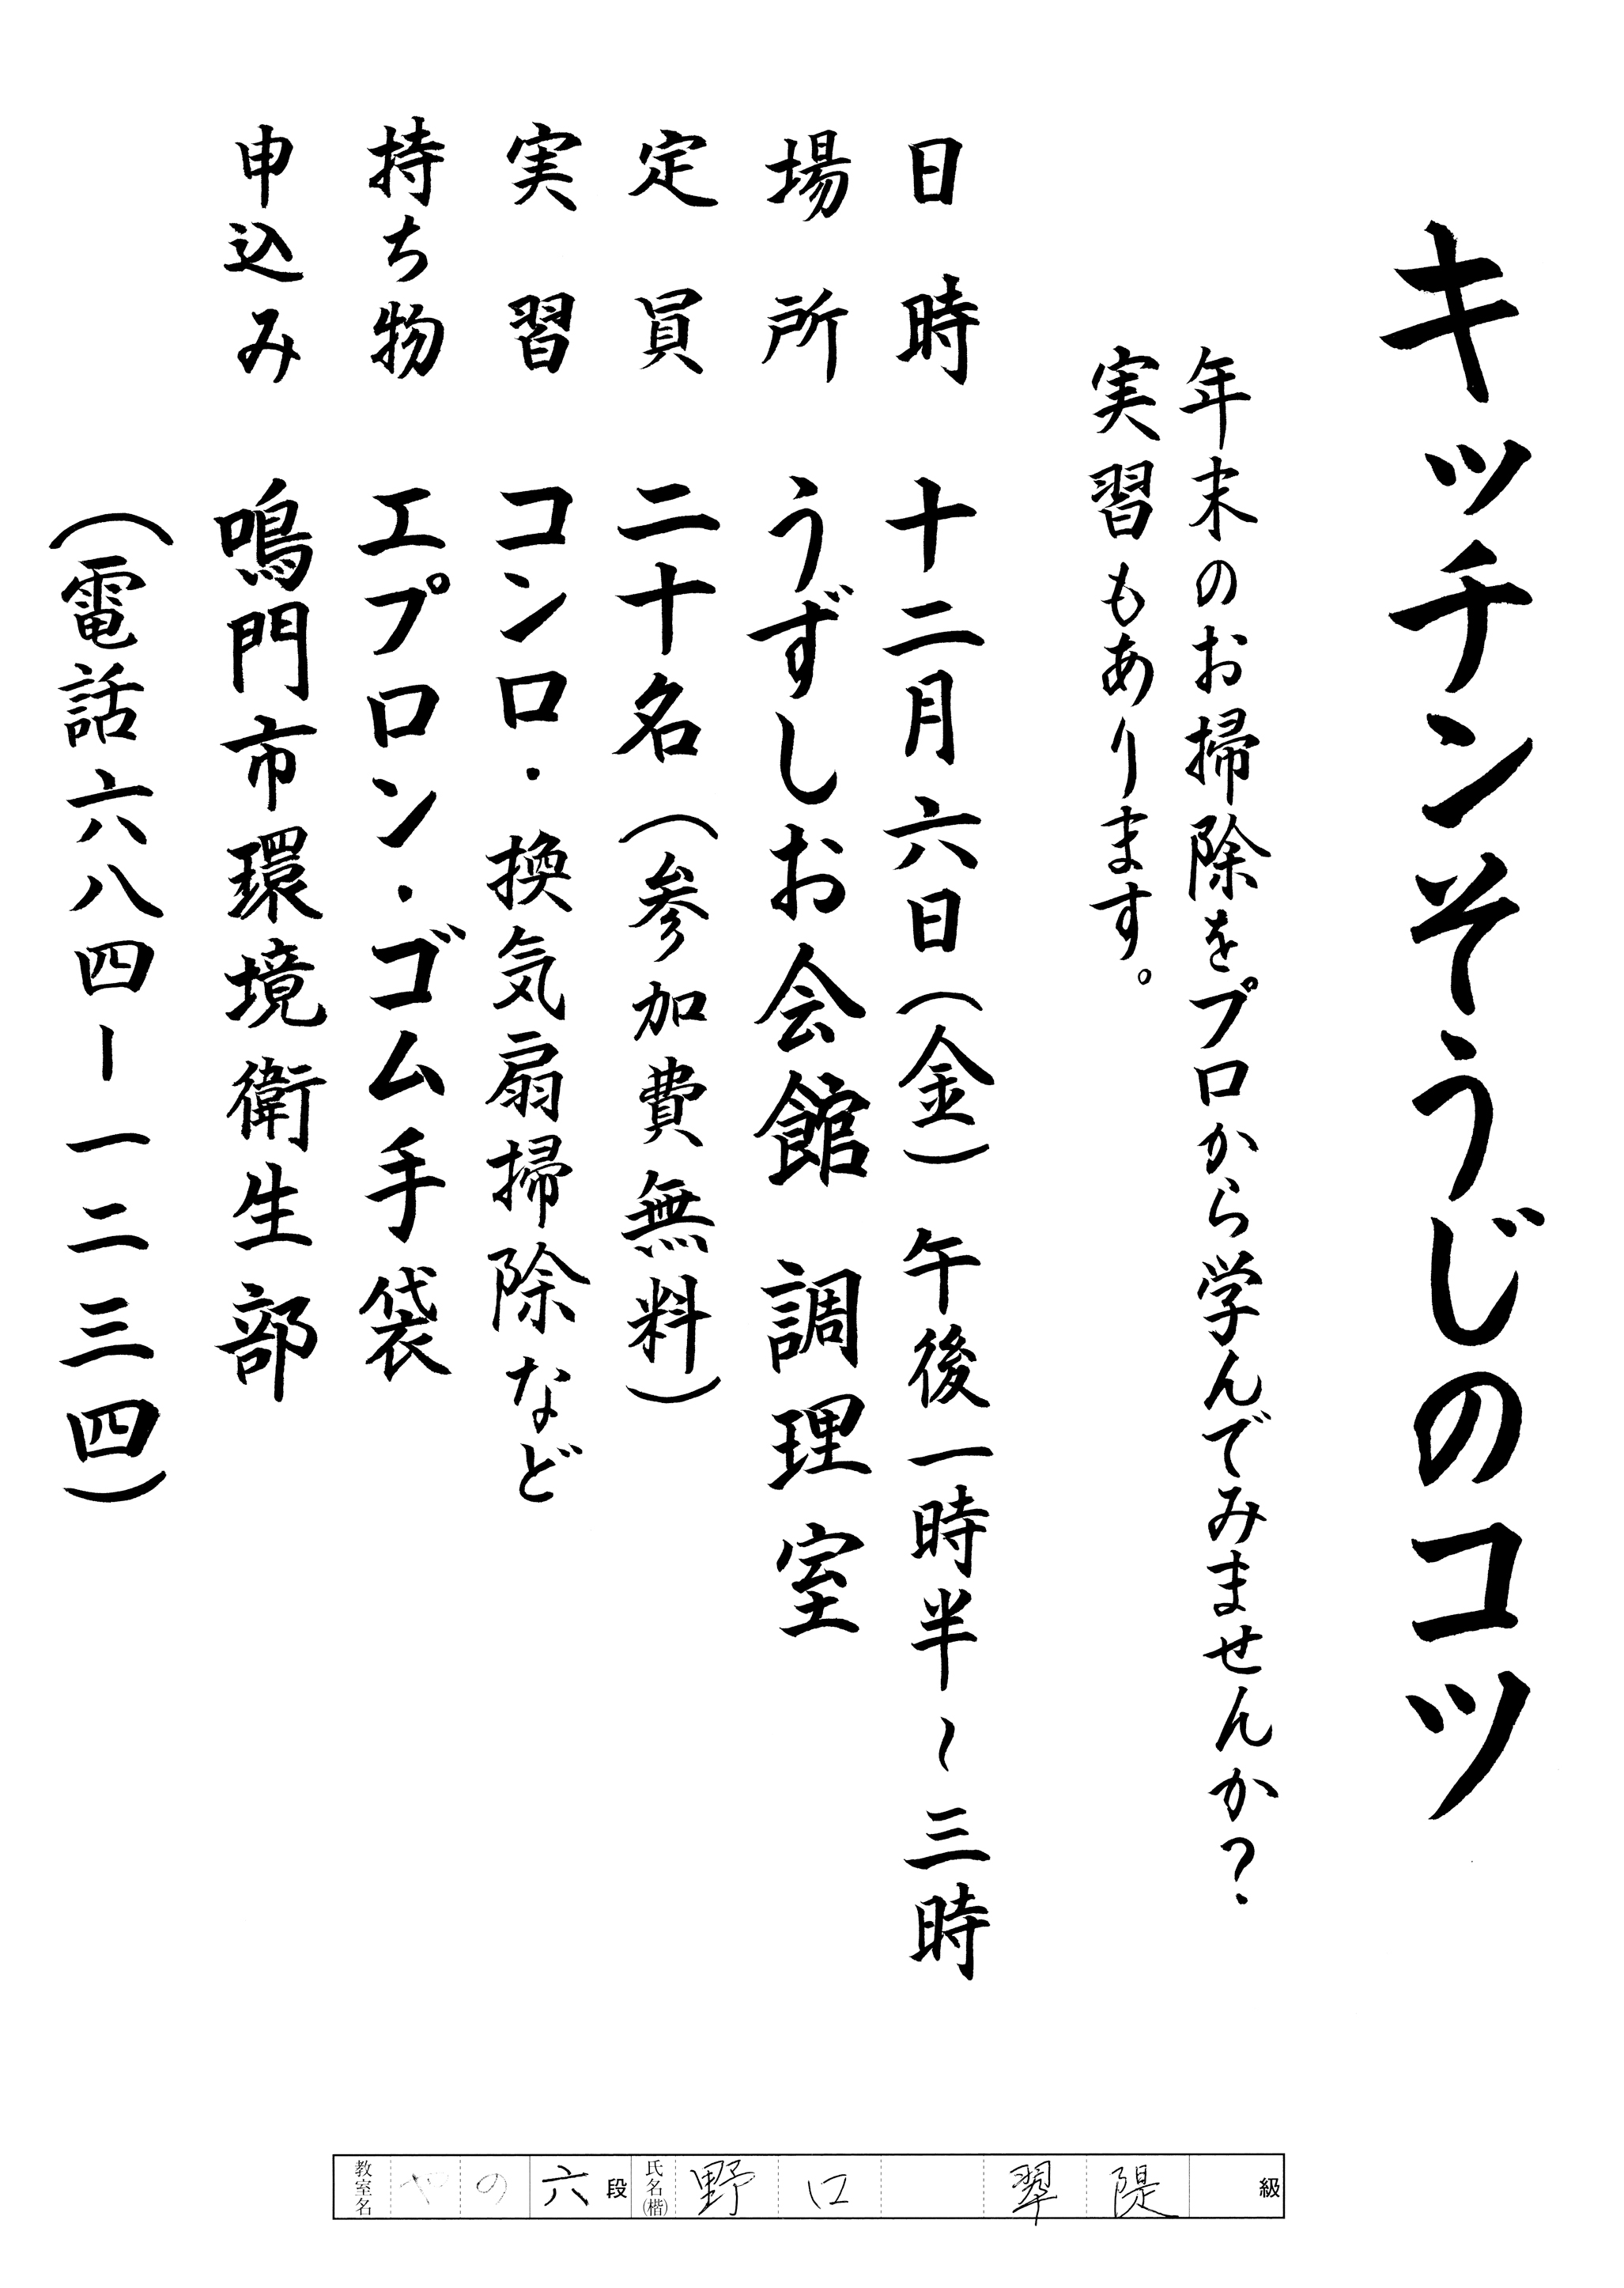 キッチンそうじのコツ
年末のお掃除をプロから学んでみませんか?
実習もあります。
日時 十二月六日(金) 午後一時半~三時
場所 うずしお会館 調理室
定員 二十名(参加費無料)
実習 コンロ・換気扇掃除など
持ち物 エプロン・ゴム手袋
申込み 鳴門市環境衛生部
(電話六八四ー一二三四)
教室名 やの 六段 氏名(楷) 野口 翠隄 級